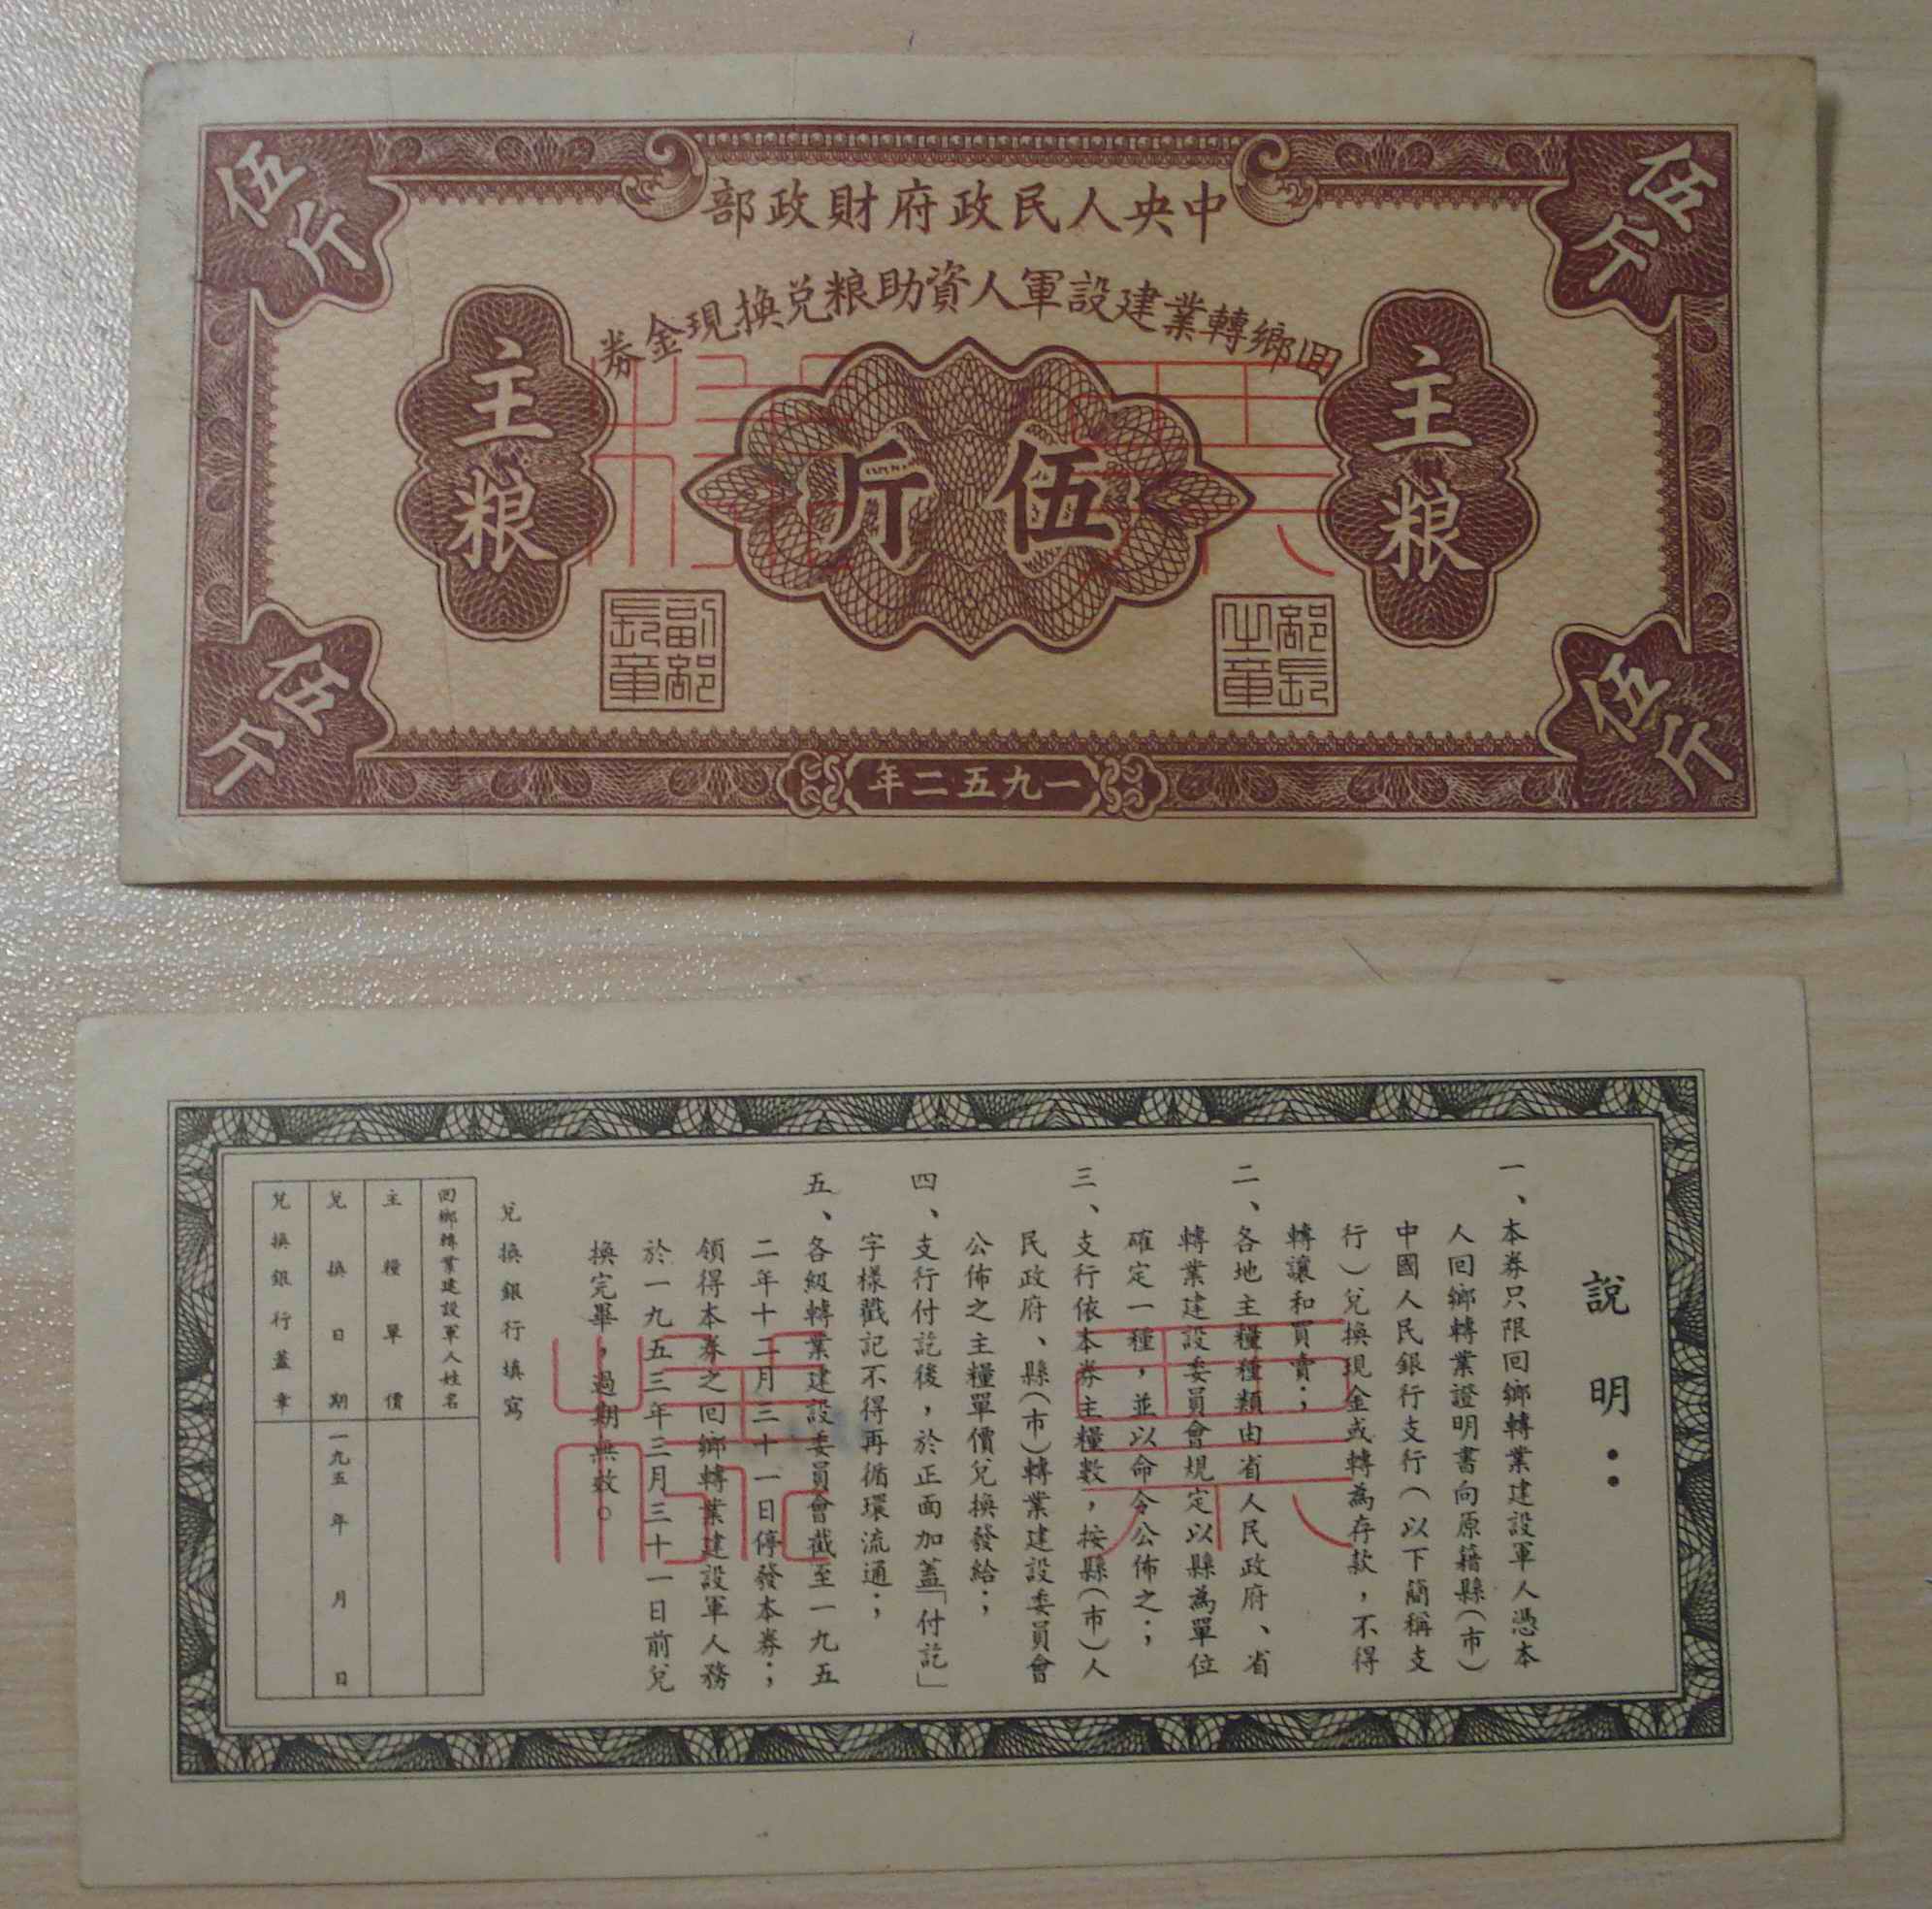 中央人民政府財政部
回鄉轉業建設軍人資助粮兑換現金券
伍斤
伍斤
伍斤
伍斤
主粮
伍斤
主粮
部長之章
副部長章
一九五二年
說明：
一、本券只限回鄉轉業建設軍人憑本
人回鄉轉業證明書向原籍縣（市）
中國人民銀行支行（以下簡稱支
行）兌換現金或轉為存款，不得
轉讓和買賣；
二、各地主糧種類由省人民政府、省
轉業建設委員會規定以縣為單位
確定一種，並以命令公佈之；
三、支行依本券主糧數，按縣（市）人
民政府、縣（市）轉業建設委員會
公佈之主糧單價兌換發給；
四、支行付訖後，於正面加蓋「付訖」
字樣戳記不得再循環流通；
五、各級轉業建設委員會截至一九五
二年十二月三十一日停發本券；
領得本券之回鄉轉業建設軍人務
於一九五三年三月三十一日前兌
換完畢，過期無效。
兌換銀行填寫
回鄉轉業建設軍人姓名
主糧單價
兌換日期 一九五 年 月 日
兌換銀行蓋章